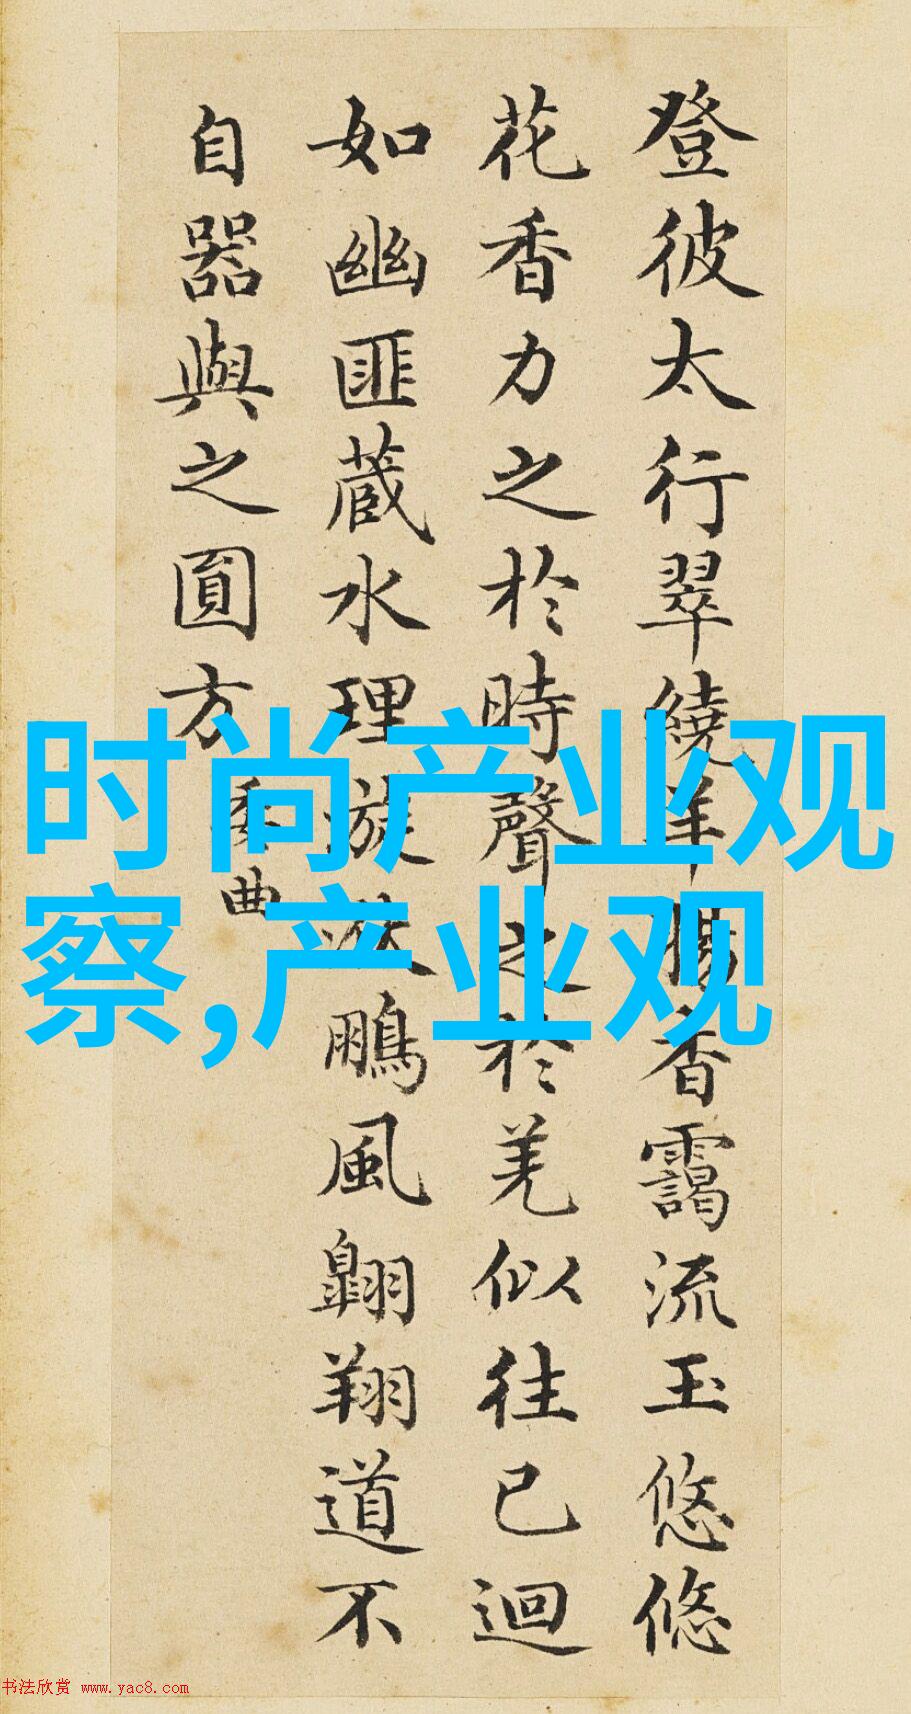 登彼太行翠繞羊腸杳靄流玉悠悠
花香力之於時聲之於羌似往已迴
如幽匪蔵水理漩洑鵬風翶翔道不
自器與之圎方
委曲
时尚产业观
察,产业观
书法欣赏 www.yac8.com